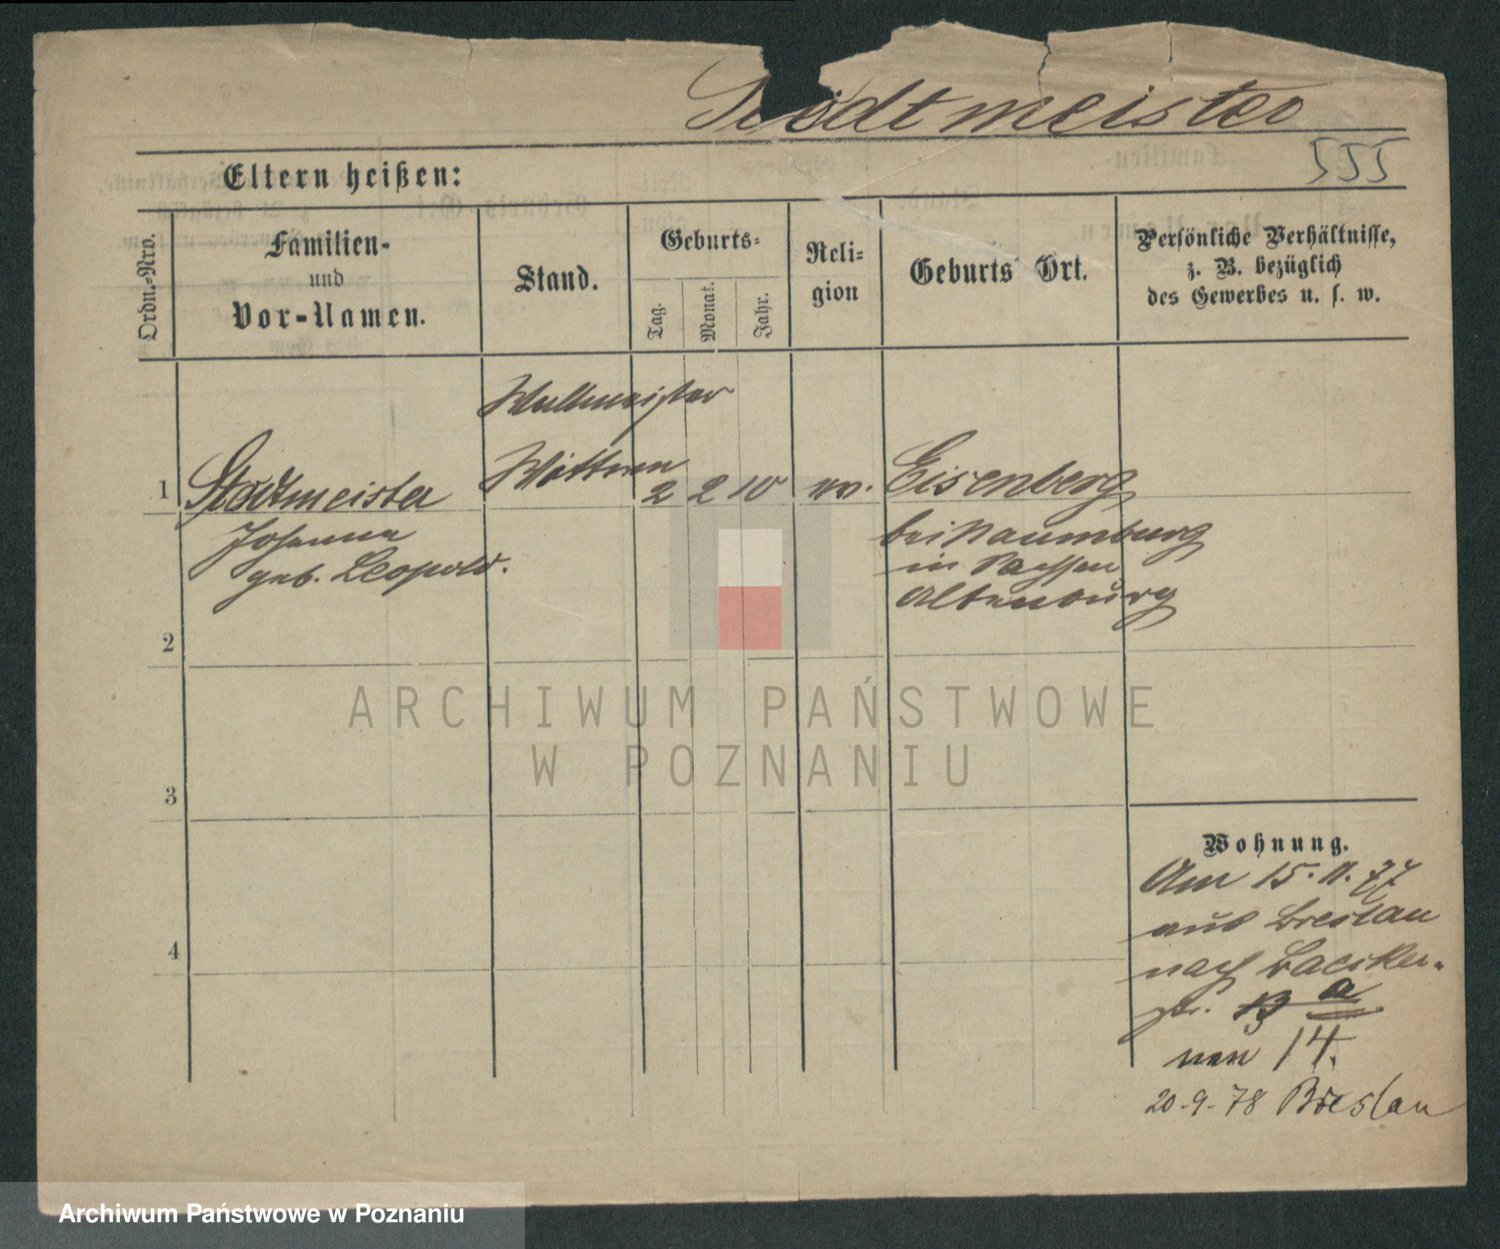 Stadtmeister
555
Eltern heißen:
Ordn.-Nro.
Familien-
und
Vor-Namen.
Stand.
Geburts-
Tag.
Monat.
Jahr.
Reli-
gion
Geburts Ort.
Persönliche Verhältnisse,
z. B. bezüglich
des Gewerbes u. s. w.
Wallmeister
Wittwe
1 Stadtmeister 2 2 10 ev. Eisenberg
Johanna
geb. Leopold.
bei Naumburg
in Sachsen
Altenburg
2
3
4
Wohnung.
Am 15.11.77
aus Breslau
nach Baecker-
str. 13 a
neu 14.
20-9-78 Breslau
ARCHIWUM PAŃSTWOWE
W POZNANIU
Archiwum Państwowe w Poznaniu